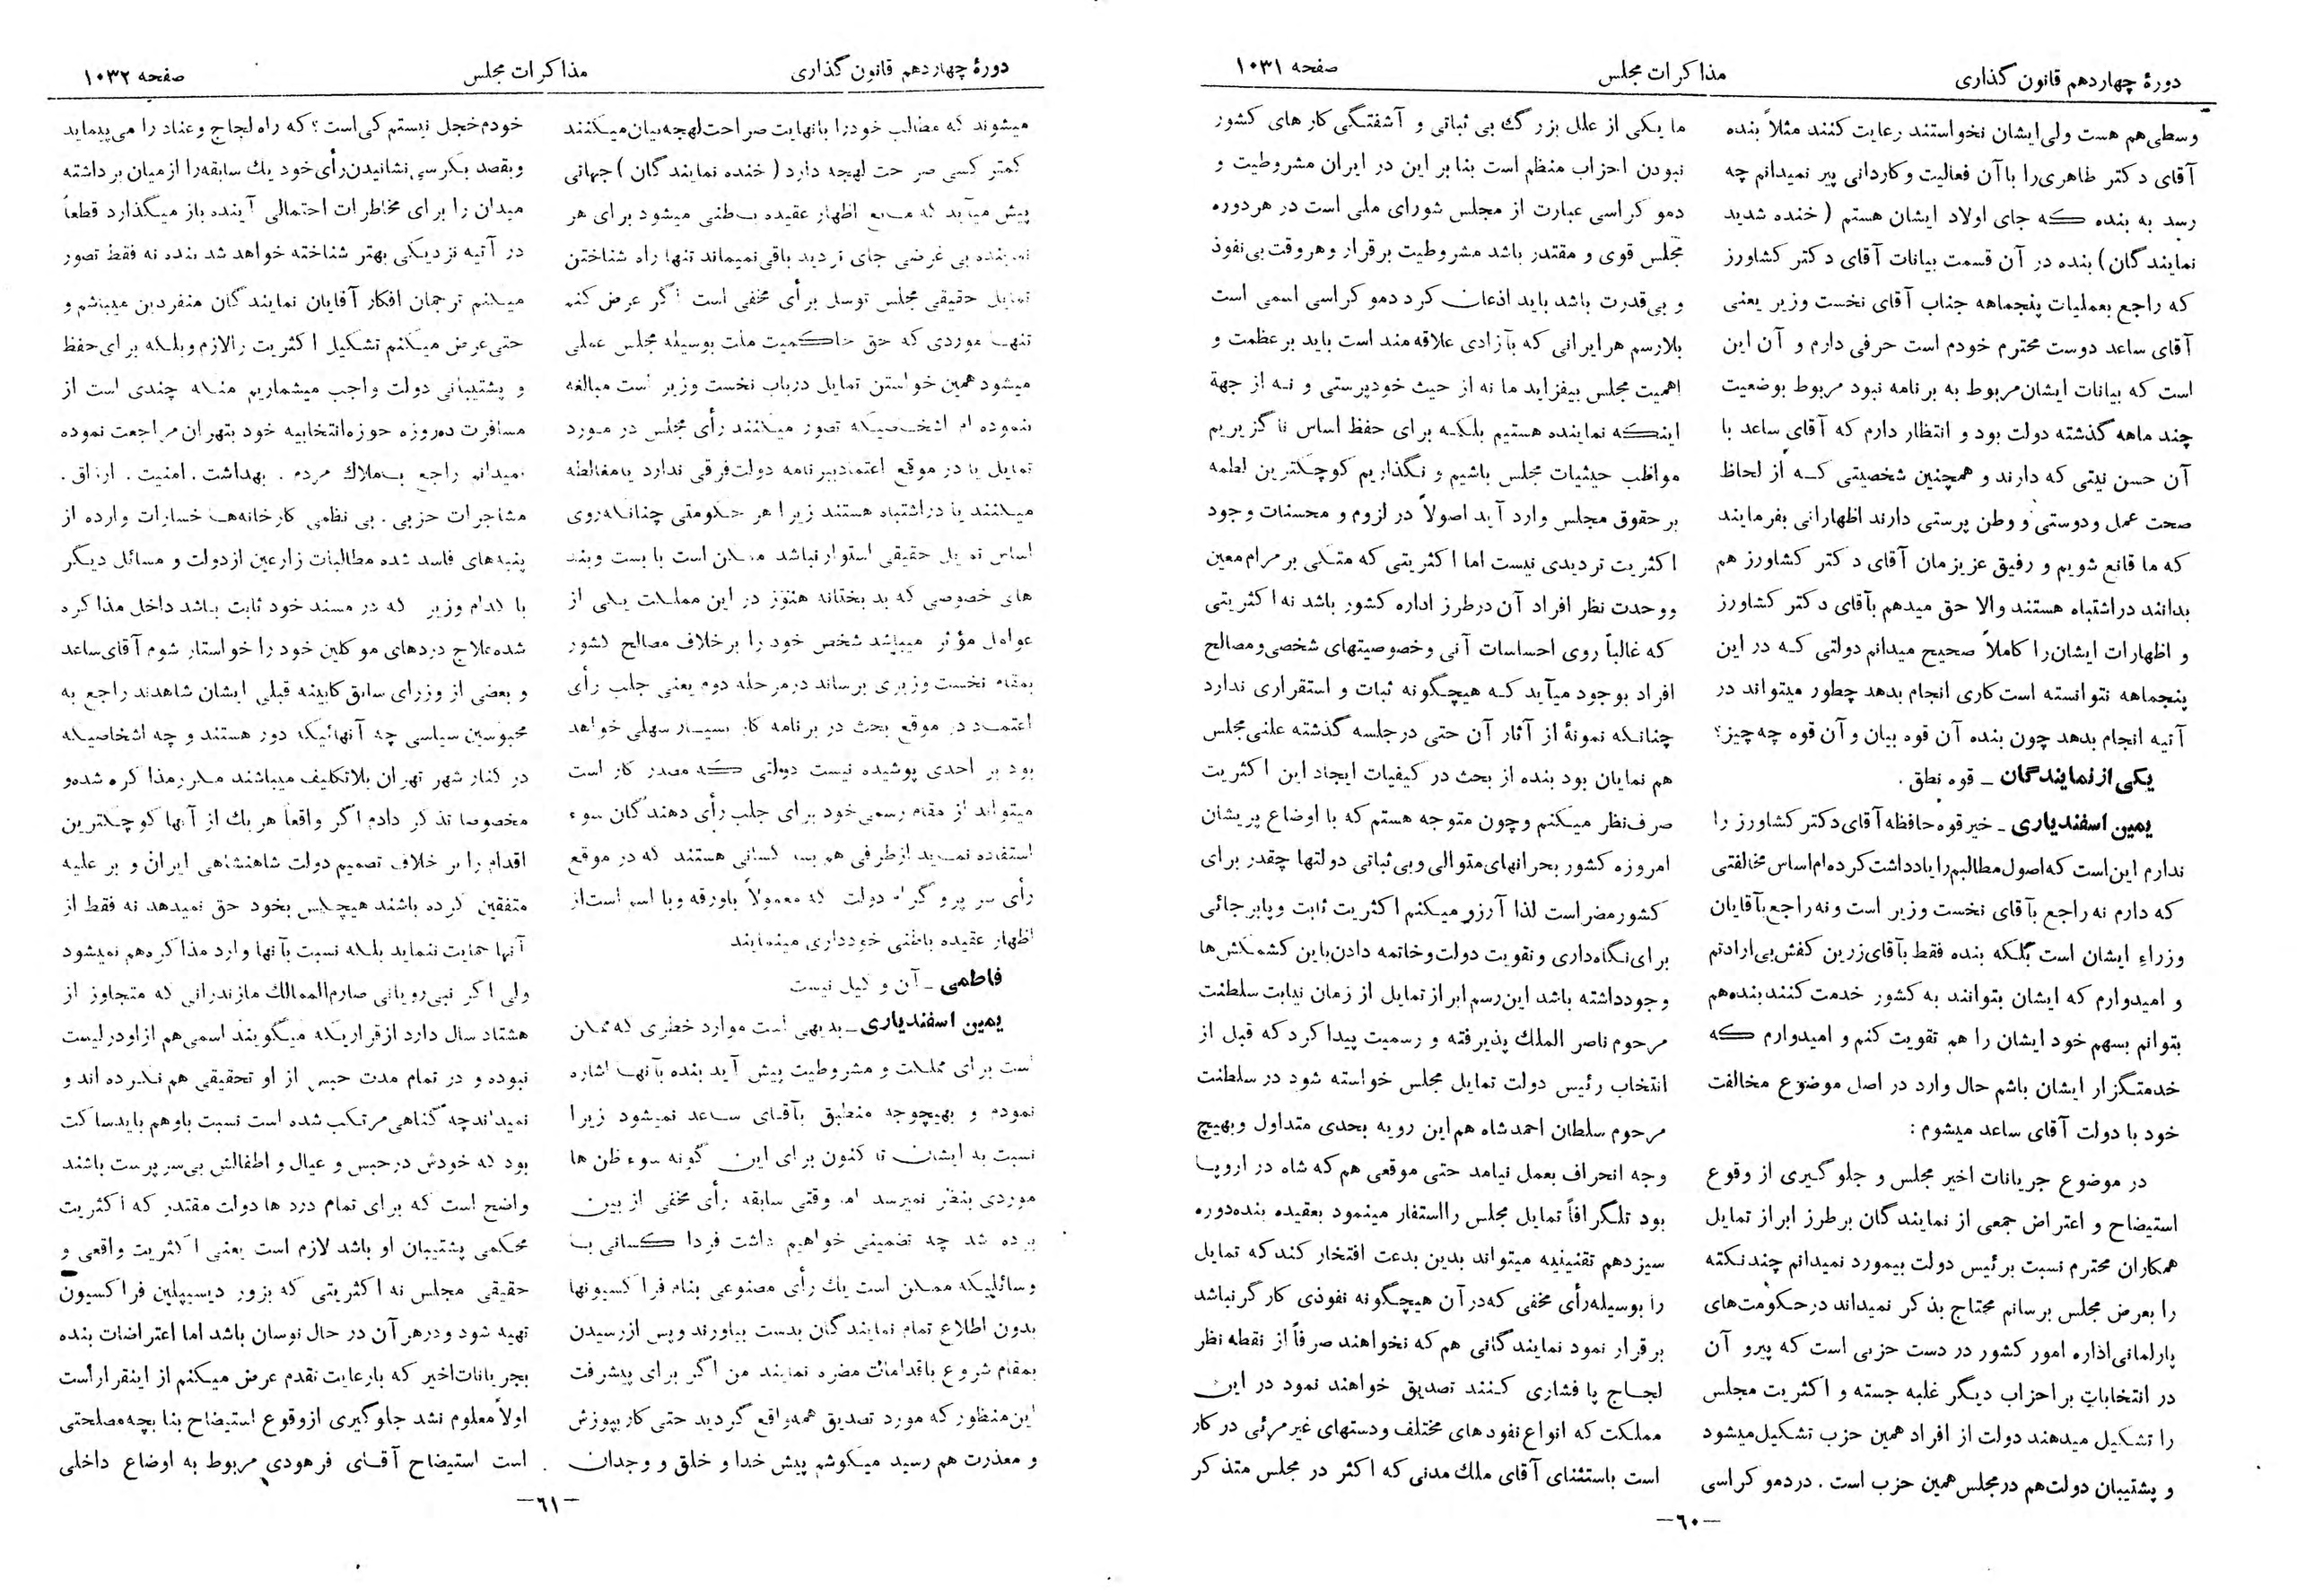 دورهٔ چهاردهم قانون گذاری
مذاکرات مجلس
صفحه ۱۰۳۱
وسطی هم هست ولی ایشان نخواستند رعایت کنند مثلاً بنده
آقای دکتر طاهری را با آن فعالیت و کاردانی پیر نمیدانم چه
رسد به بنده که جای اولاد ایشان هستم ( خنده شدید
نمایندگان ) بنده در آن قسمت بیانات آقای دکتر کشاورز
که راجع بعملیات پنجماهه جناب آقای نخست وزیر یعنی
آقای ساعد دوست محترم خودم است حرفی دارم و آن این
است که بیانات ایشان مربوط به برنامه نبود مربوط بوضعیت
چند ماهه گذشته دولت بود و انتظار دارم که آقای ساعد با
آن حسن نیتی که دارند و همچنین شخصیتی که از لحاظ
صحت عمل و دوستی و وطن پرستی دارند اظهاراتی بفرمایند
که ما قانع شویم و رفیق عزیزمان آقای دکتر کشاورز هم
بدانند دراشتباه هستند والا حق میدهم بآقای دکتر کشاورز
و اظهارات ایشان را کاملاً صحیح میدانم دولتی که در این
پنجماهه نتوانسته است کاری انجام بدهد چطور میتواند در
آتیه انجام بدهد چون بنده آن قوه بیان و آن قوه چه چیز؟
یکی از نمایندگان ـ قوه نطق .
یمین اسفندیاری ـ خیر قوه حافظه آقای دکتر کشاورز را
ندارم این است که اصول مطالبم را یادداشت کرده ام اساس مخالفتی
که دارم نه راجع بآقای نخست وزیر است و نه راجع بآقایان
وزراء ایشان است بلکه بنده فقط بآقای زرین کفش بی ارادتم
و امیدوارم که ایشان بتوانند به کشور خدمت کنند بنده هم
بتوانم بسهم خود ایشان را هم تقویت کنم و امیدوارم که
خدمتگزار ایشان باشم حال وارد در اصل موضوع مخالفت
خود با دولت آقای ساعد میشوم :
در موضوع جریانات اخیر مجلس و جلوگیری از وقوع
استیضاح و اعتراض جمعی از نمایندگان برطرز ابراز تمایل
همکاران محترم نسبت برئیس دولت بیمورد نمیدانم چند نکته
را بعرض مجلس برسانم محتاج بذکر نمیداند در حکومت‌های
پارلمانی اداره امور کشور در دست حزبی است که پیرو آن
در انتخابات بر احزاب دیگر غلبه جسته و اکثریت مجلس
را تشکیل میدهند دولت از افراد همین حزب تشکیل میشود
و پشتیبان دولت هم در مجلس همین حزب است . در دموکراسی
ما یکی از علل بزرگ بی ثباتی و آشفتگی کارهای کشور
نبودن احزاب منظم است بنا بر این در ایران مشروطیت و
دموکراسی عبارت از مجلس شورای ملی است در هر دوره
مجلس قوی و مقتدر باشد مشروطیت برقرار و هر وقت بی نفوذ
و بی قدرت باشد باید اذعان کرد دموکراسی اسمی است
بلارسم هر ایرانی که بآزادی علاقه مند است باید بر عظمت و
اهمیت مجلس بیفزاید ما نه از حیث خودپرستی و نه از جهة
اینکه نماینده هستیم بلکه برای حفظ اساس ناگزیریم
مواظب حیثیات مجلس باشیم و نگذاریم کوچکترین لطمه
بر حقوق مجلس وارد آید اصولاً در لزوم و محسنات وجود
اکثریت تردیدی نیست اما اکثریتی که متکی بر مرام معین
و وحدت نظر افراد آن در طرز اداره کشور باشد نه اکثریتی
که غالباً روی احساسات آنی و خصوصیتهای شخصی و مصالح
افراد بوجود میآید که هیچگونه ثبات و استقراری ندارد
چنانکه نمونهٔ از آثار آن حتی در جلسه گذشته علنی مجلس
هم نمایان بود بنده از بحث در کیفیات ایجاد این اکثریت
صرف نظر میکنم و چون متوجه هستم که با اوضاع پریشان
امروزه کشور بحرانهای متوالی و بی ثباتی دولتها چقدر برای
کشور مضر است لذا آرزو میکنم اکثریت ثابت و پابرجائی
برای نگاهداری و تقویت دولت و خاتمه دادن باین کشمکش‌ها
وجود داشته باشد این رسم ابراز تمایل از زمان نیابت سلطنت
مرحوم ناصر الملك پذیرفته و رسمیت پیدا کرد که قبل از
انتخاب رئیس دولت تمایل مجلس خواسته شود در سلطنت
مرحوم سلطان احمد شاه هم این رویه بحدی متداول و بهیچ
وجه انحراف بعمل نیامد حتی موقعی هم که شاه در اروپا
بود تلگرافاً تمایل مجلس را استفار مینمود بعقیده بنده دوره
سیزدهم تقنینیه میتواند بدین بدعت افتخار کند که تمایل
را بوسیله رأی مخفی که در آن هیچگونه نفوذی کارگر نباشد
برقرار نمود نمایندگانی هم که نخواهند صرفاً از نقطه نظر
لجاج پافشاری کنند تصدیق خواهند نمود در این
مملکت که انواع نفوذهای مختلف و دستهای غیر مرئی در کار
است باستثنای آقای ملك مدنی که اکثر در مجلس متذکر
ـ۶۰ـ
دورهٔ چهاردهم قانون گذاری
مذاکرات مجلس
صفحه ۱۰۳۲
میشوند که مطالب خودرا بانهایت صراحت لهجه بیان میکنند
کمتر کسی صراحت لهجه دارد ( خنده نمایندگان ) جهاتی
پیش میآید که مانع اظهار عقیده باطنی میشود برای هر
نماینده بی غرضی جای تردید باقی نمیماند تنها راه شناختن
تمایل حقیقی مجلس توسل برأی مخفی است اگر عرض کنم
تنها موردی که حق حاکمیت ملت بوسیله مجلس عملی
میشود همین خواستن تمایل درباب نخست وزیر است مبالغه
ننموده ام اشخاصیکه تصور میکنند رأی مجلس در مورد
تمایل یا در موقع اعتماد ببرنامه دولت فرقی ندارد یا مغالطه
میکنند یا در اشتباه هستند زیرا هر حکومتی چنانکه روی
اساس تمایل حقیقی استوار نباشد ممکن است با بست و بند
های خصوصی که بدبختانه هنوز در این مملکت یکی از
عوامل مؤثر میباشد شخص خود را برخلاف مصالح کشور
بمقام نخست وزیری برساند در مرحله دوم یعنی جلب رأی
اعتماد در موقع بحث در برنامه کار بسیار سهلی خواهد
بود بر احدی پوشیده نیست دولتی که مصدر کار است
میتواند از مقام رسمی خود برای جلب رأی دهندگان سوء
استفاده نماید از طرفی هم بسا کسانی هستند که در موقع
رأی سر پروگرام دولت که معمولاً باورقه و با اسم است از
اظهار عقیده باطنی خودداری مینمایند
فاطمی ـ آن وکیل نیست
یمین اسفندیاری ـ بدیهی است موارد خطری که ممکن
است برای مملکت و مشروطیت پیش آید بنده بآنها اشاره
نمودم و بهیچوجه منطبق بآقای ساعد نمیشود زیرا
نسبت به ایشان تا کنون برای این گونه سوء ظن ها
موردی بنظر نمیرسد اما وقتی سابقه رأی مخفی از بین
برده شد چه تضمینی خواهیم داشت فردا کسانی با
وسائلیکه ممکن است یك رأی مصنوعی بنام فراکسیونها
بدون اطلاع تمام نمایندگان بدست بیاورند و پس از رسیدن
بمقام شروع باقدامات مضره نمایند من اگر برای پیشرفت
این منظور که مورد تصدیق همه واقع گردید حتی کار بپوزش
و معذرت هم رسید میکوشم پیش خدا و خلق و وجدان
خودم خجل نیستم کی است؟ که راه لجاج و عناد را می پیماید
و بقصد بکرسی نشانیدن رأی خود یك سابقه را از میان برداشته
میدان را برای مخاطرات احتمالی آینده باز میگذارد قطعاً
در آتیه نزدیکی بهتر شناخته خواهد شد بنده نه فقط تصور
میکنم ترجمان افکار آقایان نمایندگان منفردین میباشم و
حتی عرض میکنم تشکیل اکثریت را لازم و بلکه برای حفظ
و پشتیبانی دولت واجب میشماریم منکه چندی است از
مسافرت ده روزه حوزه انتخابیه خود بتهران مراجعت نموده
نمیدانم راجع باملاك مردم . بهداشت . امنیت . ارزاق .
مشاجرات حزبی . بی نظمی کارخانه‌ها خسارات وارده از
پنبه‌های فاسد شده مطالبات زارعین از دولت و مسائل دیگر
با کدام وزیر که در مسند خود ثابت باشد داخل مذاکره
شده علاج دردهای موکلین خود را خواستار شوم آقای ساعد
و بعضی از وزرای سابق کابینه قبلی ایشان شاهدند راجع به
محبوسین سیاسی چه آنهائیکه دور هستند و چه اشخاصیکه
در کنار شهر تهران بلاتکلیف میباشند مکرر مذاکره شده و
مخصوصا تذکر دادم اگر واقعاً هر یك از آنها کوچکترین
اقدام را بر خلاف تصمیم دولت شاهنشاهی ایران و بر علیه
متفقین کرده باشند هیچکس بخود حق نمیدهد نه فقط از
آنها حمایت ننماید بلکه نسبت بآنها وارد مذاکره هم نمیشود
ولی اگر نبی رویانی صارم الممالك مازندرانی که متجاوز از
هشتاد سال دارد از قراریکه میگویند اسمی هم از او در لیست
نبوده و در تمام مدت حبس از او تحقیقی هم نکرده اند و
نمیداند چه گناهی مرتکب شده است نسبت باو هم باید ساکت
بود که خودش در حبس و عیال و اطفالش بی سرپرست باشند
واضح است که برای تمام درد ها دولت مقتدر که اکثریت
محکمی پشتیبان او باشد لازم است یعنی اکثریت واقعی و
حقیقی مجلس نه اکثریتی که بزور دیسیپلین فراکسیون
تهیه شود و در هر آن در حال نوسان باشد اما اعتراضات بنده
بجریانات اخیر که بارعایت تقدم عرض میکنم از اینقرار است
اولاً معلوم نشد جلوگیری از وقوع استیضاح بنا بچه مصلحتی
است استیضاح آقای فرهودی مربوط به اوضاع داخلی
ـ۶۱ـ